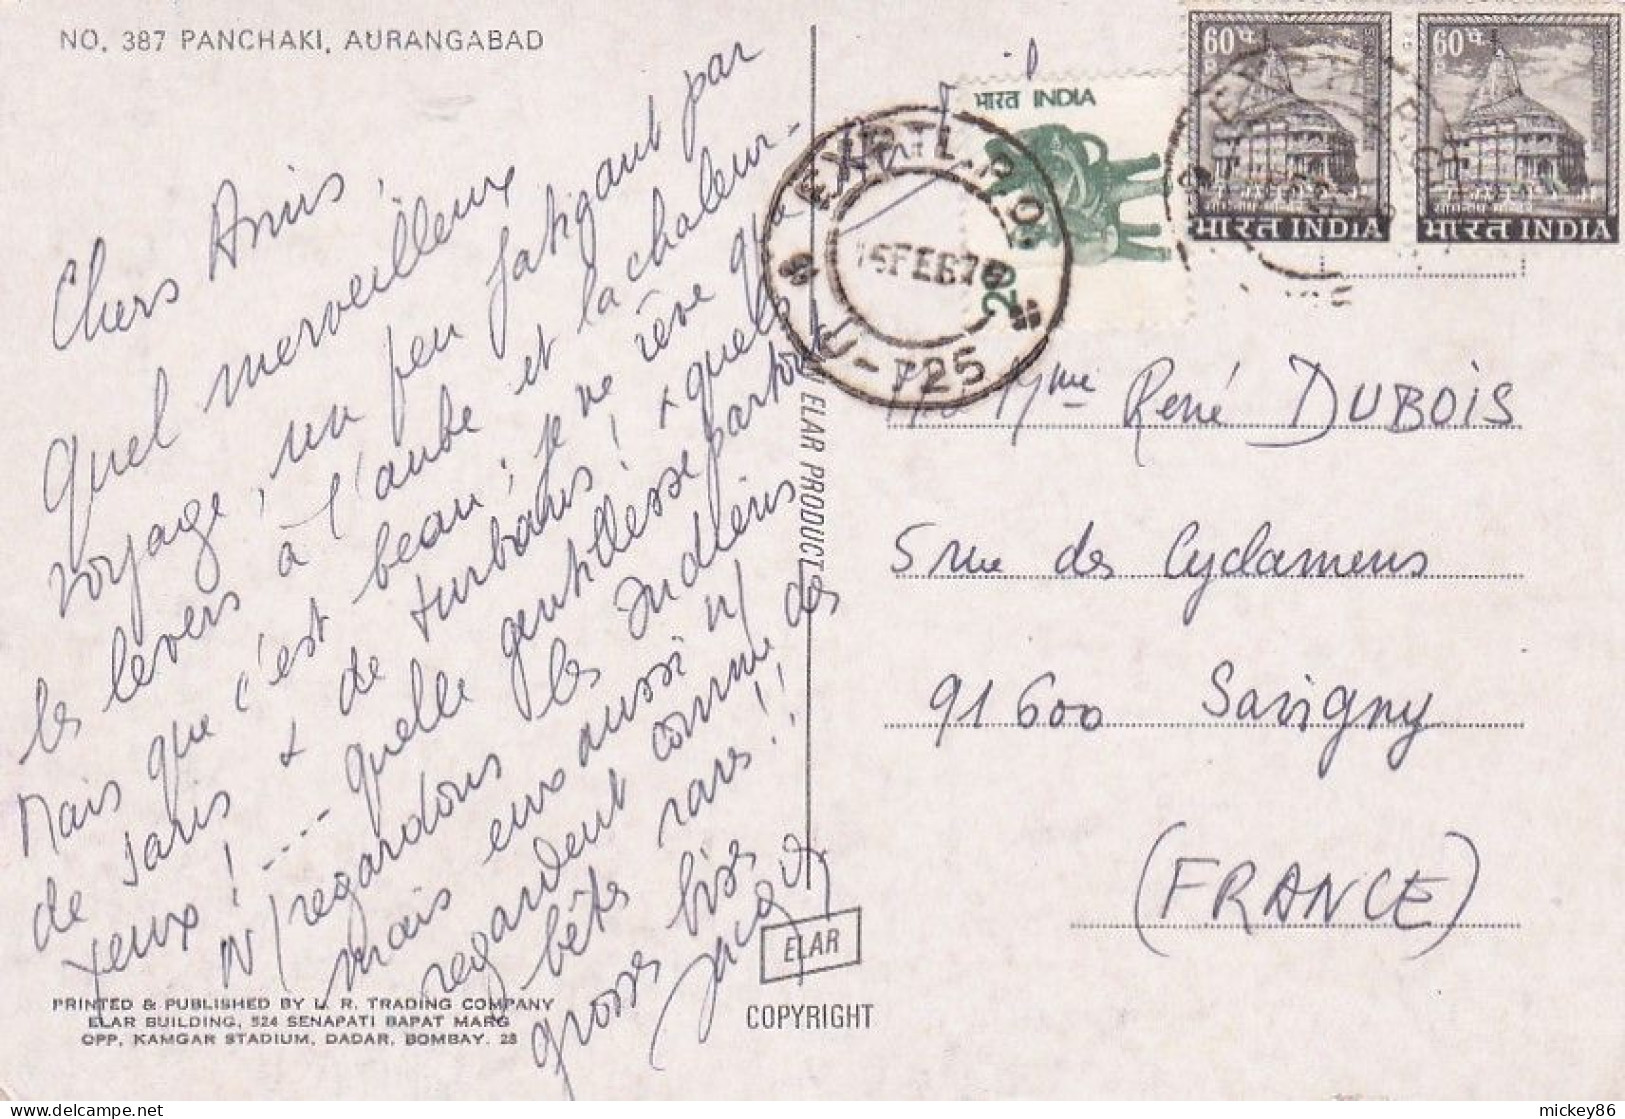 NO. 387 PANCHAKI, AURANGABAD
Chers Amis,
Quel merveilleux
voyage, un peu fatigant par
les levers à l'aube et la chaleur -
Mais que c'est beau ; je ne rêve qu'à
de saris + de turbans ! + quels
yeux ! .... quelle gentillesse partout
N/ regardons les Indiens
mais eux aussi n/
regardent comme des
bêtes rares !!
grosses bises
PRINTED & PUBLISHED BY U. R. TRADING COMPANY
ELAR BUILDING, 524 SENAPATI BAPAT MARG
OPP. KAMGAR STADIUM, DADAR, BOMBAY. 28
ELAR PRODUCT
ELAR
COPYRIGHT
भारत INDIA
60 प.
P
भारत INDIA
60 प.
P
भारत INDIA
EXP-T.L.P.O.
16 FEB 76
U-725
Mme René DUBOIS
5 rue des Cyclamens
91 600 Savigny
(FRANCE)
mickey86